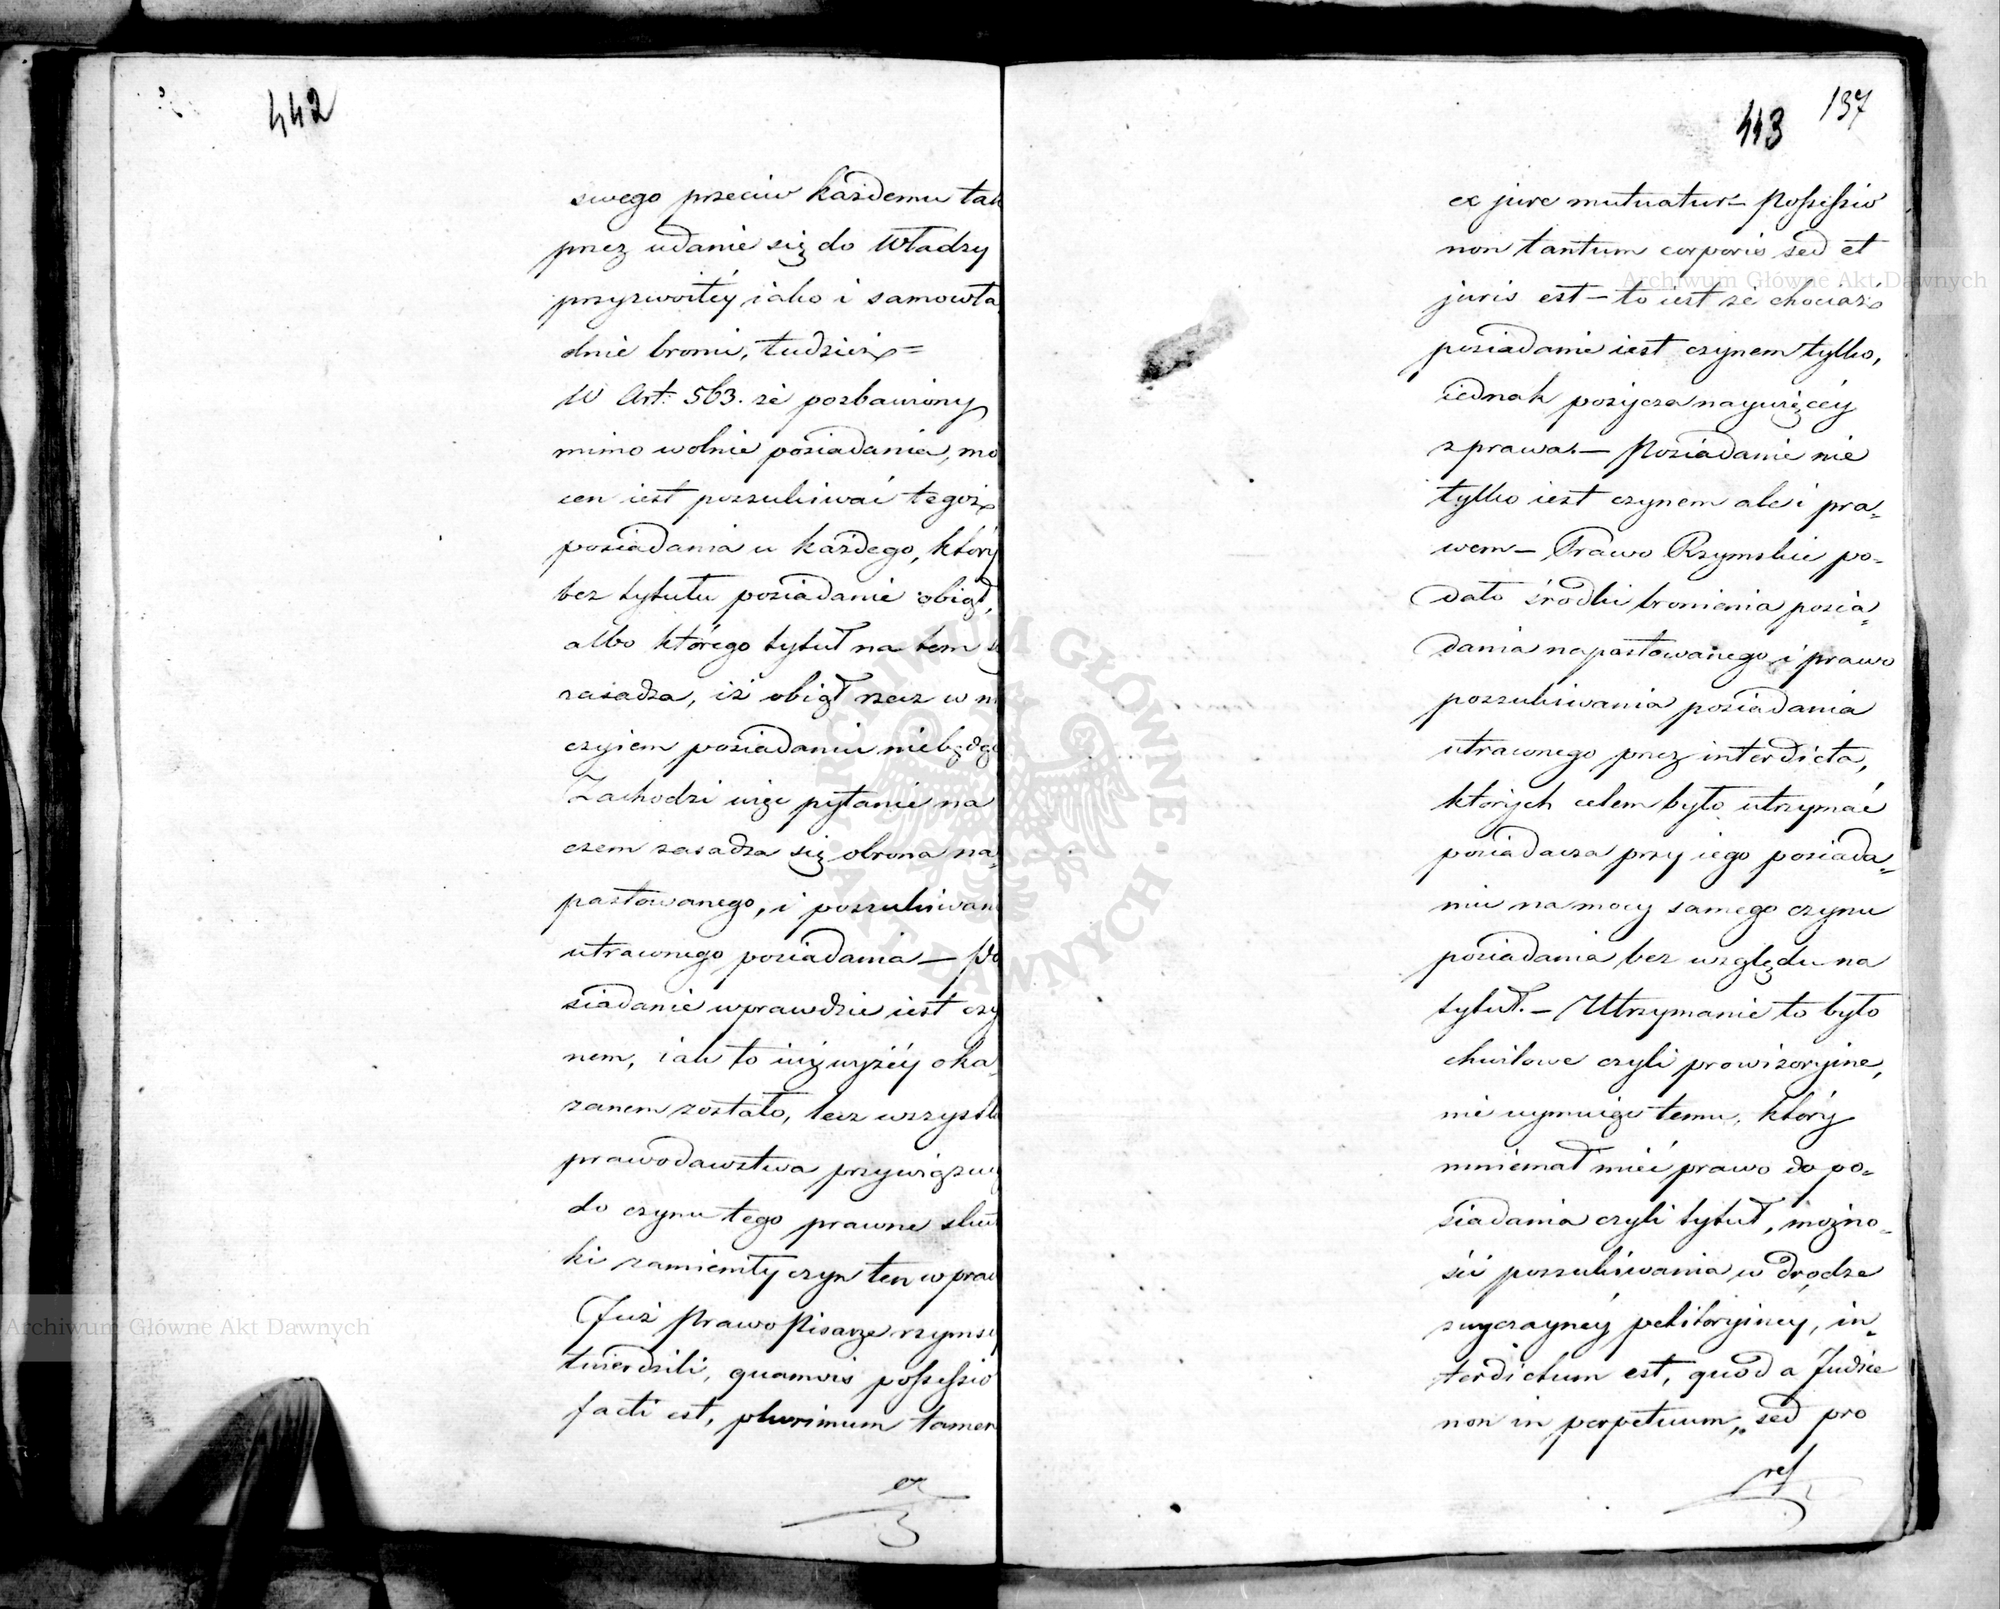 442
swego przeciw każdemu tak
przez udanie się do Władzy
przyzwoitéy iako i samowła
dnie broni, tudzież=
W Art: 563. że pozbawiony
mimo wolnie posiadania, mo
cen iest poszukiwać tegoż
posiadania u każdego, który
bez tytułu posiadanie obiął,
albo którego tytuł na tem
zasadza, iż obiął rzecz w
czyiem posiadaniu niebędąc
Zachodzi więc pytanie na
czem zasadza się obrona na=
pastowanego, i poszukiwan
utraconego posiadania – Po
siadanie wprawdzie iest czy
nem, iak to iuż wyżéy oka=
zanem zostało, lecz wszystk
prawodawstwa przywiązuią
do czynu tego prawne skut
ki zamieniły czyn ten w praw
Już Prawo Pisarze rzyms
twierdzili, quamvis possessio
facti est, plurimum tamen
ex
443 137
ex jure mutuatur – Possessio
non tantum corporis sed et
juris est – to iest że chociaż
posiadanie iest czynem tylko,
iednak pożycza naywięcéy
z prawa. – Posiadanie nie
tylko iest czynem ale i pra=
wem – Prawo Rzymskie po=
dało środki bronienia posia=
dania napastowanego i prawo
poszukiwania posiadania
utraconego przez interdicta,
których celem było utrzymać
posiadacza przy iego posiada=
niu na mocy samego czynu
posiadania bez względu na
tytuł. – Utrzymanie to było
chwilowe czyli prowizoryine,
nie uymuiąc temu, który
mniemał mieć prawo do po=
siadania czyli tytuł, możno=
ści poszukiwania w drodze
zwyczaynéy petitoryiney, in=
terdictum est, quod a Judice
non in perpetuum, sed pro
ref
Archiwum Główne Akt Dawnych
Archiwum Główne Akt Dawnych
ARCHIWUM GŁÓWNE · AKT DAWNYCH ·